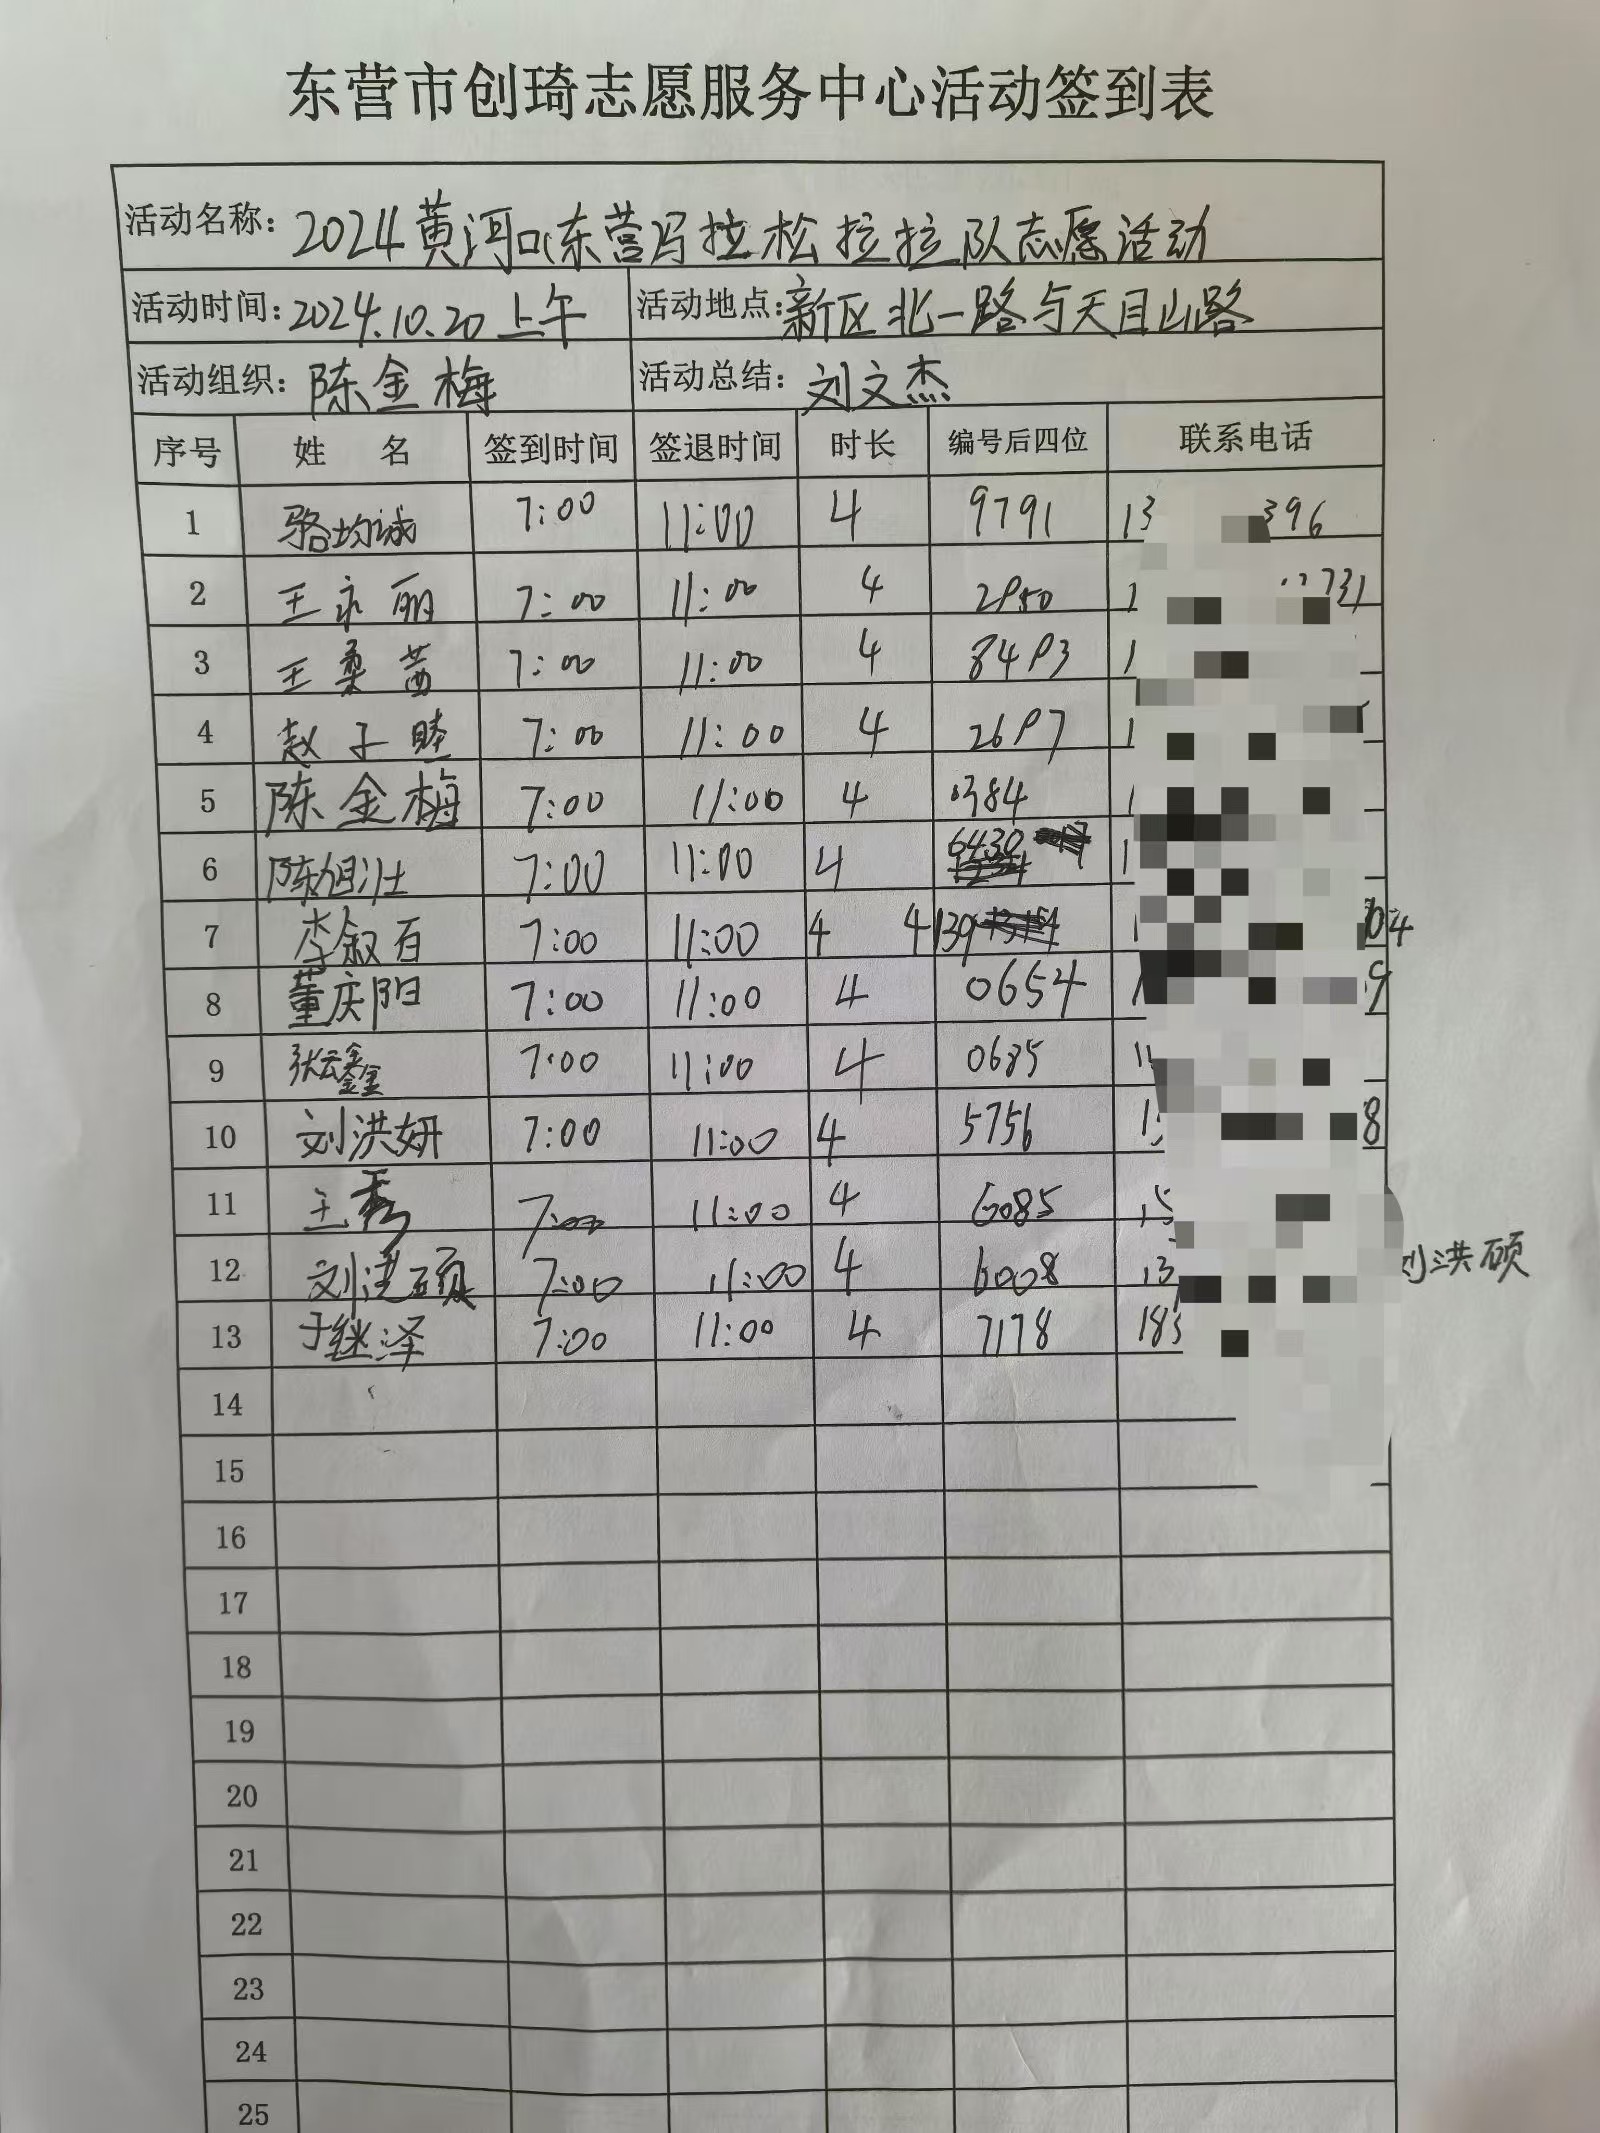 东营市创琦志愿服务中心活动签到表
活动名称：2024黄河口东营马拉松拉拉队志愿活动
活动时间：2024.10.20上午 活动地点：新区北一路与天目山路
活动组织：陈金梅 活动总结：刘文杰
序号 姓 名 签到时间 签退时间 时长 编号后四位 联系电话
1 骆均诚 7:00 11:00 4 9791 13 396
2 王永丽 7:00 11:00 4 2950 1 731
3 王桑茜 7:00 11:00 4 8493 1
4 赵子睦 7:00 11:00 4 2697 1
5 陈金梅 7:00 11:00 4 0384 1
6 陈旭壮 7:00 11:00 4 6430 1
7 李叙百 7:00 11:00 4 4139 04
8 董庆阳 7:00 11:00 4 0654 1 9
9 张云鑫 7:00 11:00 4 0685 1
10 刘洪妍 7:00 11:00 4 5756 15 8
11 王秀 7:00 11:00 4 6085 15
12 刘洪硕 7:00 11:00 4 6008 13 刘洪硕
13 于继泽 7:00 11:00 4 7178 183
14
15
16
17
18
19
20
21
22
23
24
25